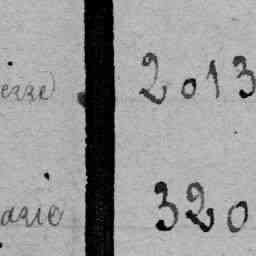 ierre) 2013
ario 320